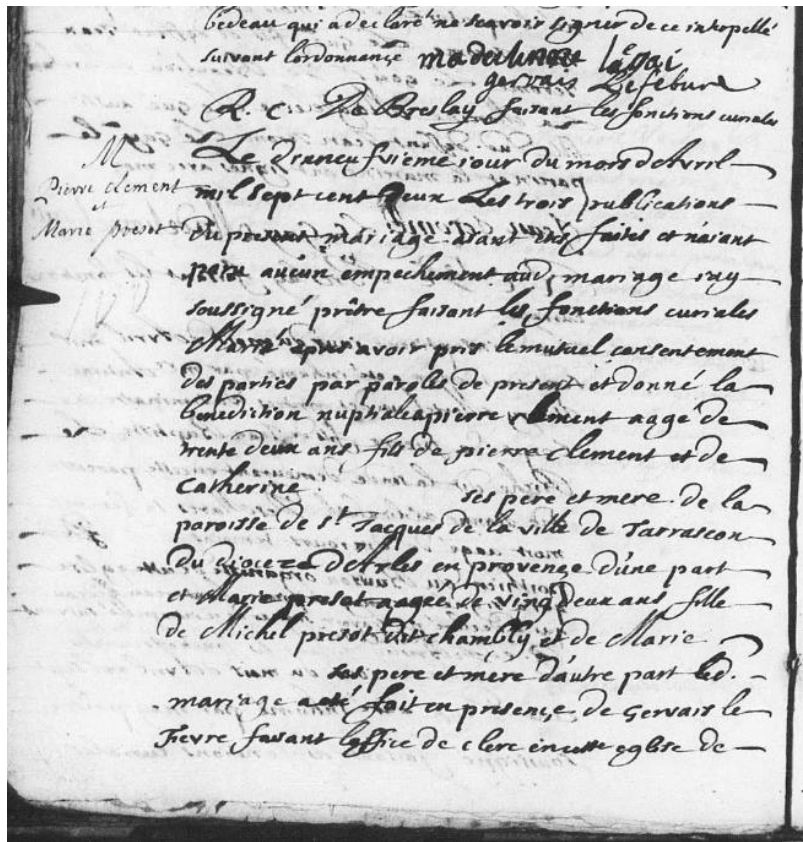 bedeau qui a declaré ne scavoir signer de ce interpellé
suivant lordonnance
gervais Lefebure
R. C. De Breslay faisant les fonctions curiales
M
Pierre clement
et
Marie presot
Le jour du mois d'Avril
mil sept cent deux Les trois publications
du present mariage aiant eté faites et n'aiant
aucun empechement aud. mariage
soussigné prêtre faisant les fonctions curiales
Marié aprés avoir pris le mutuel consentement
des parties par paroles de present et donné la
benediction nuptiale a pierre clement aagé de
trente deux ans fils de pierre clement et de
Catherine ses pere et mere de la
paroisse de St Jacques de la ville de Tarrascon
du dioceze d'Arles en provence d'une part
et Marie presot aagée de vingt deux ans fille
de Michel presot dit chambly et de Marie
ses pere et mère d'autre part led.
mariage a eté fait en presence de Gervais le
Fievre faisant l'office de clerc en cette eglise de